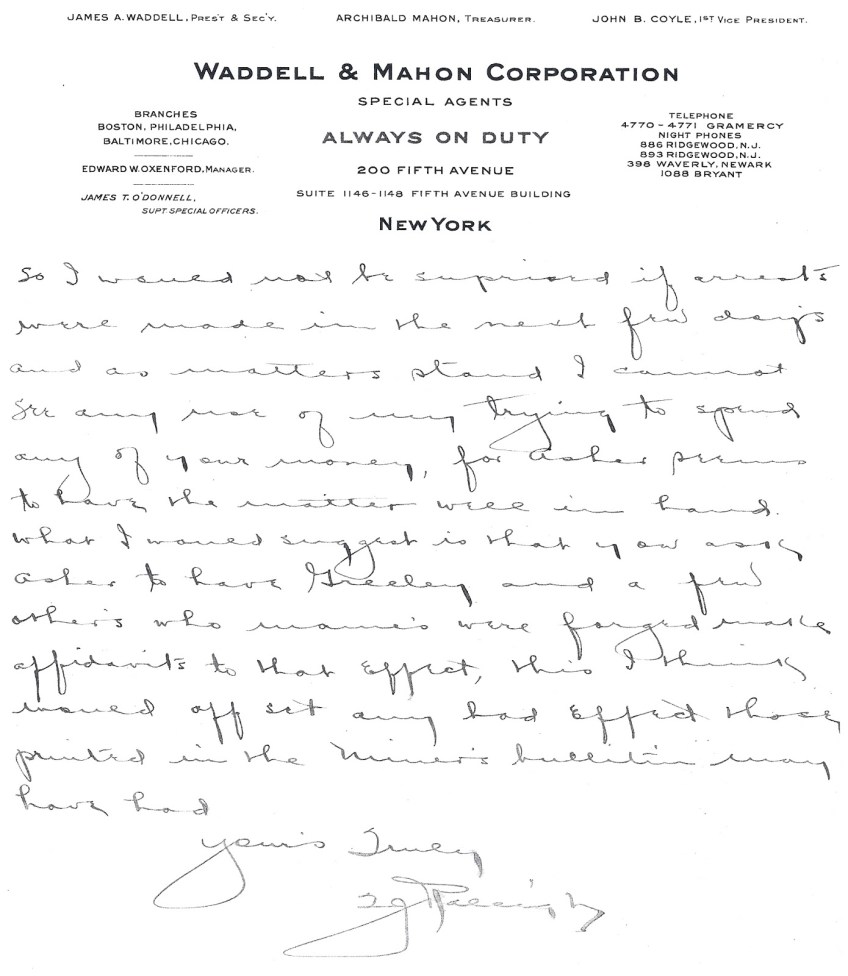 JAMES A. WADDELL, PRES'T & SEC'Y.
ARCHIBALD MAHON, TREASURER.
JOHN B. COYLE, 1ST VICE PRESIDENT.
WADDELL & MAHON CORPORATION
SPECIAL AGENTS
ALWAYS ON DUTY
200 FIFTH AVENUE
SUITE 1146-1148 FIFTH AVENUE BUILDING
NEW YORK
BRANCHES
BOSTON, PHILADELPHIA,
BALTIMORE, CHICAGO.
EDWARD W. OXENFORD, MANAGER.
JAMES T. O'DONNELL,
SUPT. SPECIAL OFFICERS.
TELEPHONE
4770-4771 GRAMERCY
NIGHT PHONES
886 RIDGEWOOD, N.J.
893 RIDGEWOOD, N.J.
398 WAVERLY, NEWARK
1088 BRYANT
So I would not be suprised if arrests
were made in the next few days
and as matters stand I cannot
see any use of my trying to spend
any of your money, for Asher seems
to have the matter well in hand.
What I would suggest is that you ask
Asher to have Greeley and a few
others who name's were forged make
affidavits to that effect, this I think
would off set any bad effect those
printed in the Miner's bulletin may
have had
Your's Truly